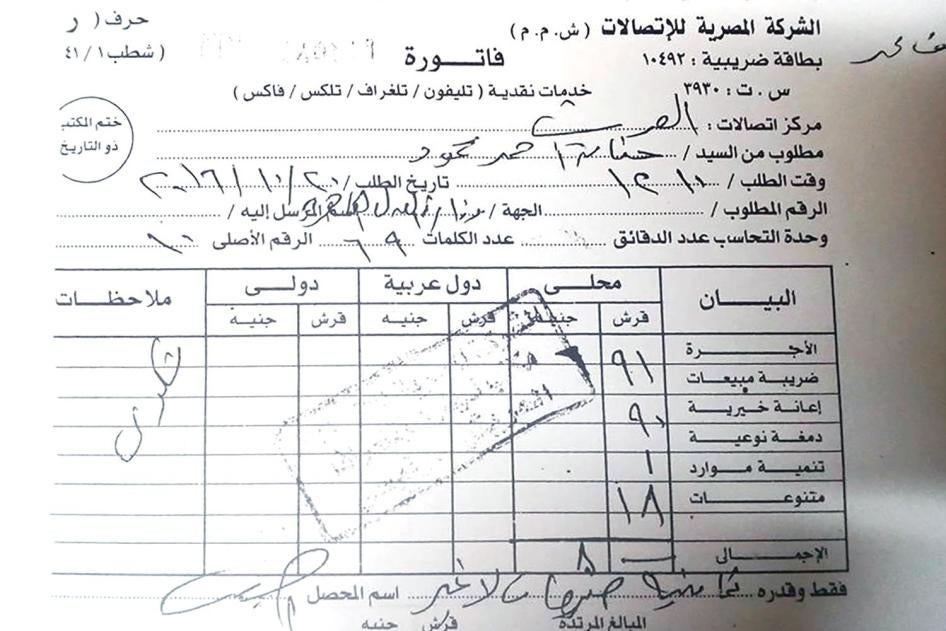 الشركة المصرية للإتصالات ( ش . م . م )
حرف ( ر
بطاقة ضريبية : ١٠٤٩٢
فاتورة
( شطب ٤١/١
س . ت : ٣٩٣٠
خدمات نقدية ( تليفون / تلغراف / تلكس / فاكس )
ختم المكتب
ذو التاريخ
مركز اتصالات :
مطلوب من السيد / احمد محمود
وقت الطلب / ١٢ ١٠ تاريخ الطلب / ٢٠ / ١٠ / ٢٠١٦
الرقم المطلوب / الجهة / وزارة العدل القاهرة اسم المرسل إليه /
وحدة التحاسب عدد الدقائق عدد الكلمات ٦٩ الرقم الأصلى ٩٠
البيان محلى دول عربية دولى ملاحظات
قرش جنيه قرش جنيه قرش جنيه
الأجرة
ضريبة مبيعات ٩١
إعانة خيرية
دمغة نوعية ٩٠
تنمية موارد ١
متنوعات ١٨
الإجمالى — ٨
فقط وقدره ثمانية جنيها لا غير اسم المحصل
المبالغ المرتدة قرش جنيه